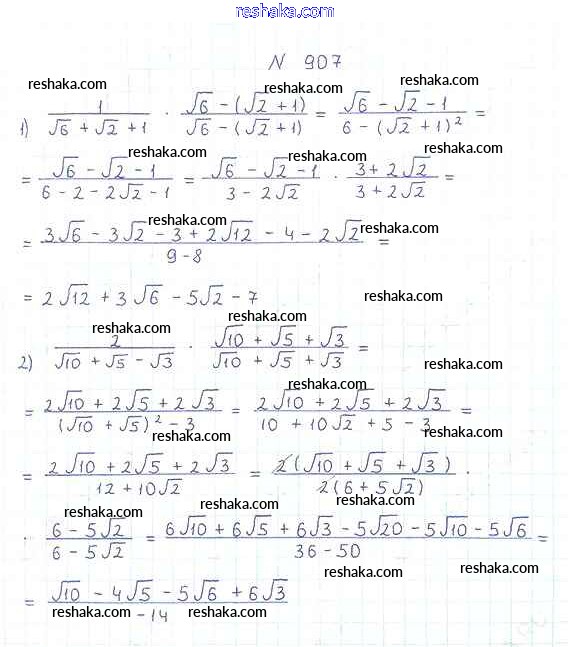 reshaka.com
N 907
reshaka.com reshaka.com reshaka.com
1) 1/(√6 + √2 + 1) · (√6 - (√2 + 1))/(√6 - (√2 + 1)) = (√6 - √2 - 1)/(6 - (√2 + 1)²) =
reshaka.com reshaka.com reshaka.com
= (√6 - √2 - 1)/(6 - 2 - 2√2 - 1) = (√6 - √2 - 1)/(3 - 2√2) · (3 + 2√2)/(3 + 2√2) =
reshaka.com reshaka.com
= (3√6 - 3√2 - 3 + 2√12 - 4 - 2√2)/(9 - 8) =
= 2√12 + 3√6 - 5√2 - 7 reshaka.com
reshaka.com
2) 2/(√10 + √5 - √3) · (√10 + √5 + √3)/(√10 + √5 + √3) =
reshaka.com
reshaka.com
= (2√10 + 2√5 + 2√3)/((√10 + √5)² - 3) = (2√10 + 2√5 + 2√3)/(10 + 10√2 + 5 - 3) =
reshaka.com reshaka.com
= (2√10 + 2√5 + 2√3)/(12 + 10√2) = 2(√10 + √5 + √3)/2(6 + 5√2) ·
reshaka.com reshaka.com reshaka.com
· (6 - 5√2)/(6 - 5√2) = (6√10 + 6√5 + 6√3 - 5√20 - 5√10 - 5√6)/(36 - 50) =
reshaka.com reshaka.com
= (√10 - 4√5 - 5√6 + 6√3)/(-14)
reshaka.com reshaka.com